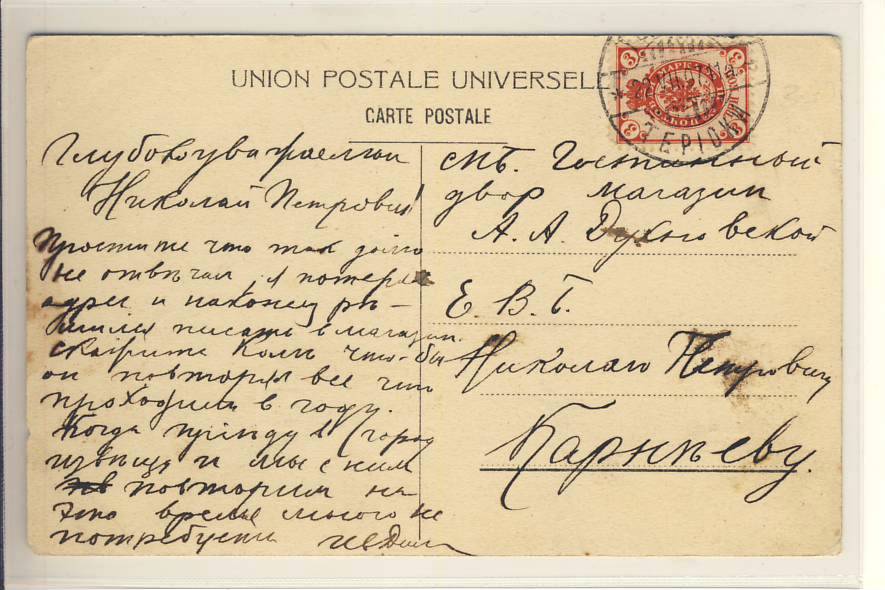 UNION POSTALE UNIVERSELLE
CARTE POSTALE
Глубокоуважаемый
Николай Петрович!
Простите что так долго
не отвѣчал, я потерял
адрес и наконец рѣ-
шился писать в магазин.
скажите Коли что-бы
он повторял все что
проходили в году.
Когда пріиду в город
и мы с ним
повторим на
это время много не
потребуется
спб. Гостинный
двор магазин
А. А. Духновской
Е. В. Б.
Николаю Петровичу
Карнѣеву.
МАРКА
3
3
3
3
ЗЕРІОКИ